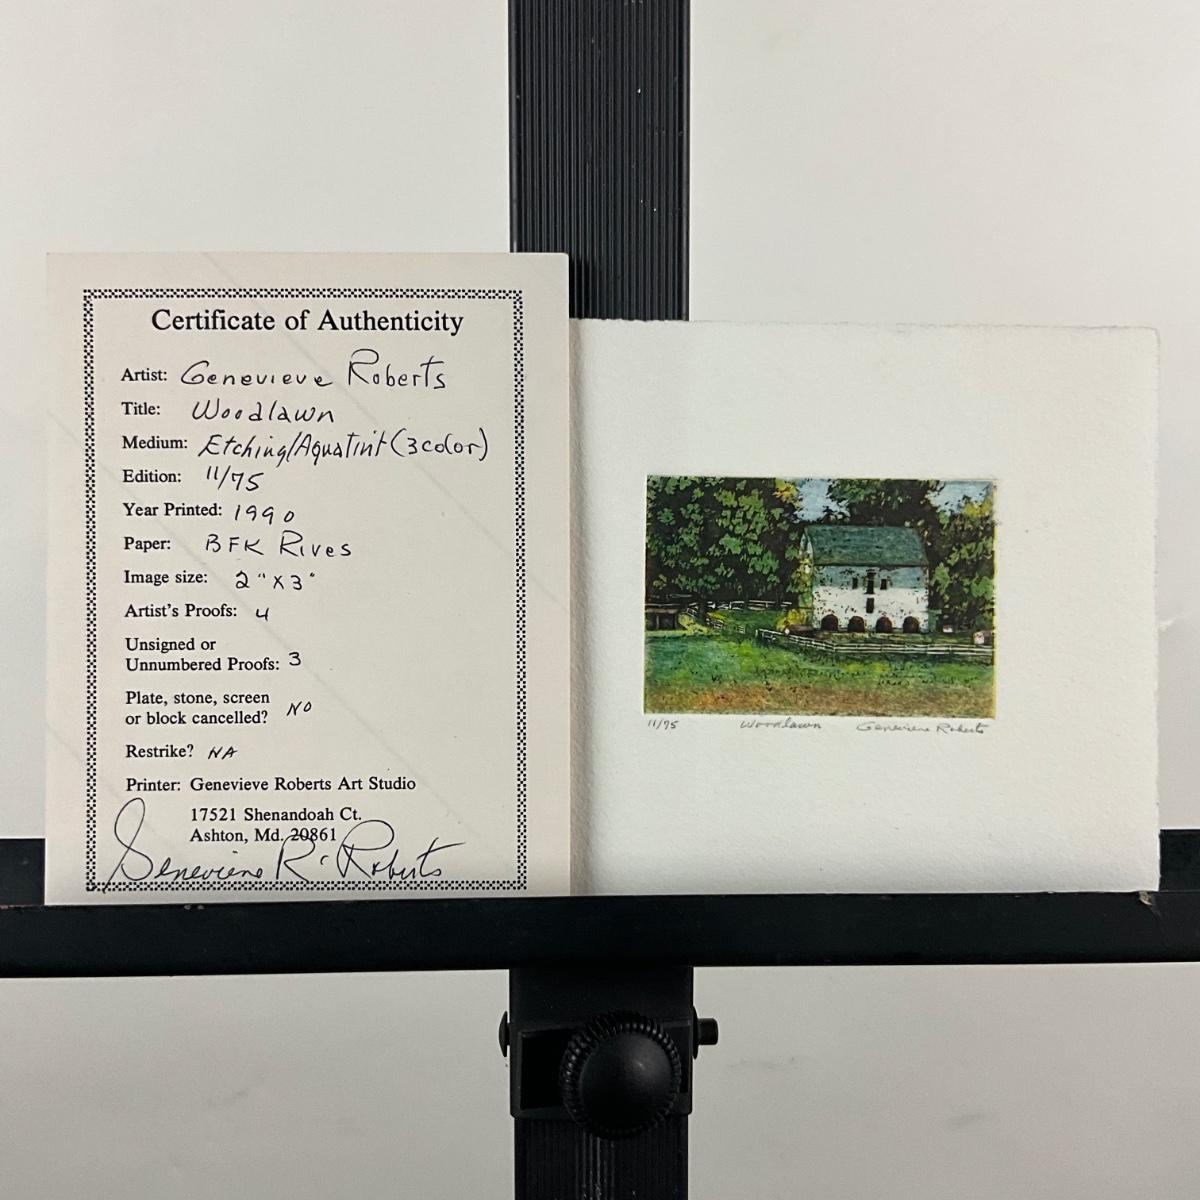 Certificate of Authenticity
Artist: Genevieve Roberts
Title: Woodlawn
Medium: Etching/Aquatint (3color)
Edition: 11/75
Year Printed: 1990
Paper: BFK Rives
Image size: 2" x 3"
Artist's Proofs: 4
Unsigned or
Unnumbered Proofs: 3
Plate, stone, screen
or block cancelled? NO
Restrike? NA
Printer: Genevieve Roberts Art Studio
17521 Shenandoah Ct.
Ashton, Md. 20861
Genevieve R. Roberts
11/75 Woodlawn Genevieve Roberts